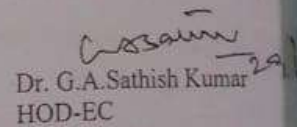 Dr. G.A.Sathish Kumar
HOD-EC